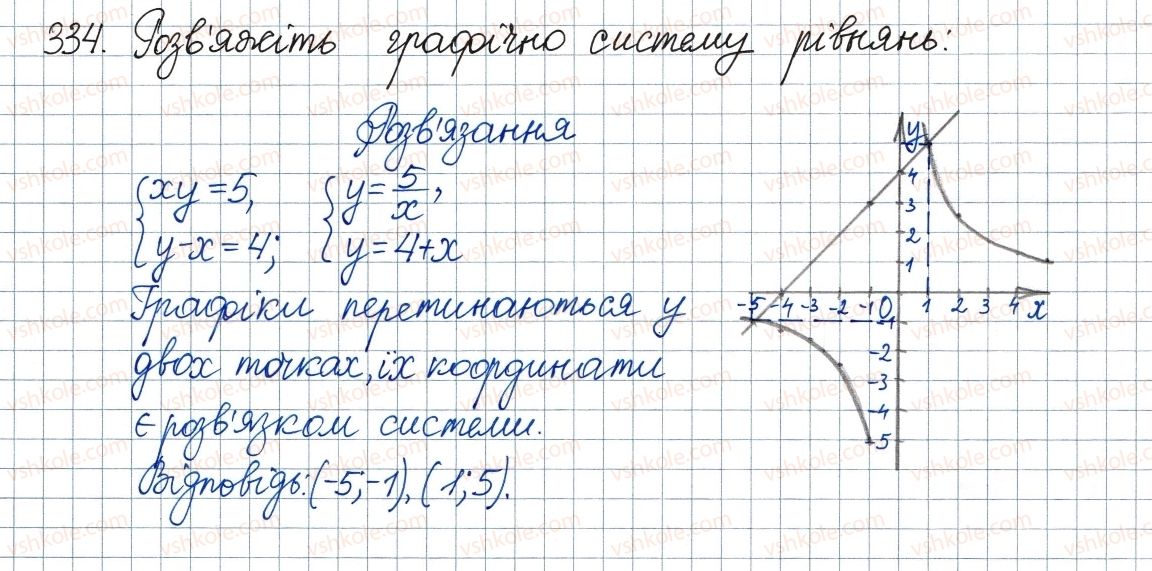 334. Розв'яжіть графічно систему рівнянь:
Розв'язання
{xy = 5, {y = 5/x,
{y - x = 4; {y = 4 + x
Графіки перетинаються у
двох точках, їх координати
є розв'язком системи.
Відповідь: (-5; -1), (1; 5).
y
4
3
2
1
-5 -4 -3 -2 -1 0 1 2 3 4 x
-1
-2
-3
-4
-5
vshkole.com